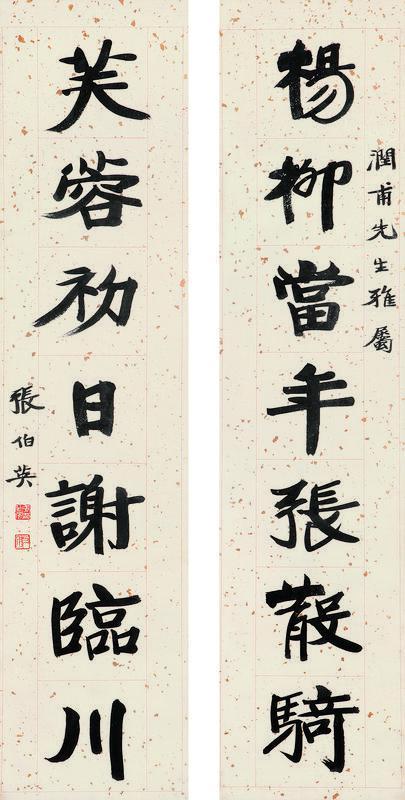 楊柳當年張散騎
潤甫先生雅屬
芙蓉初日謝臨川
張伯英